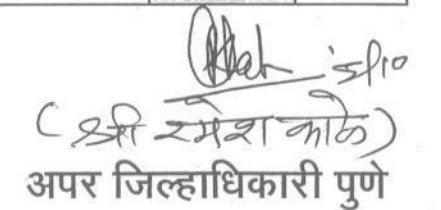 5/10
( श्री रमेश काळे )
अपर जिल्हाधिकारी पुणे